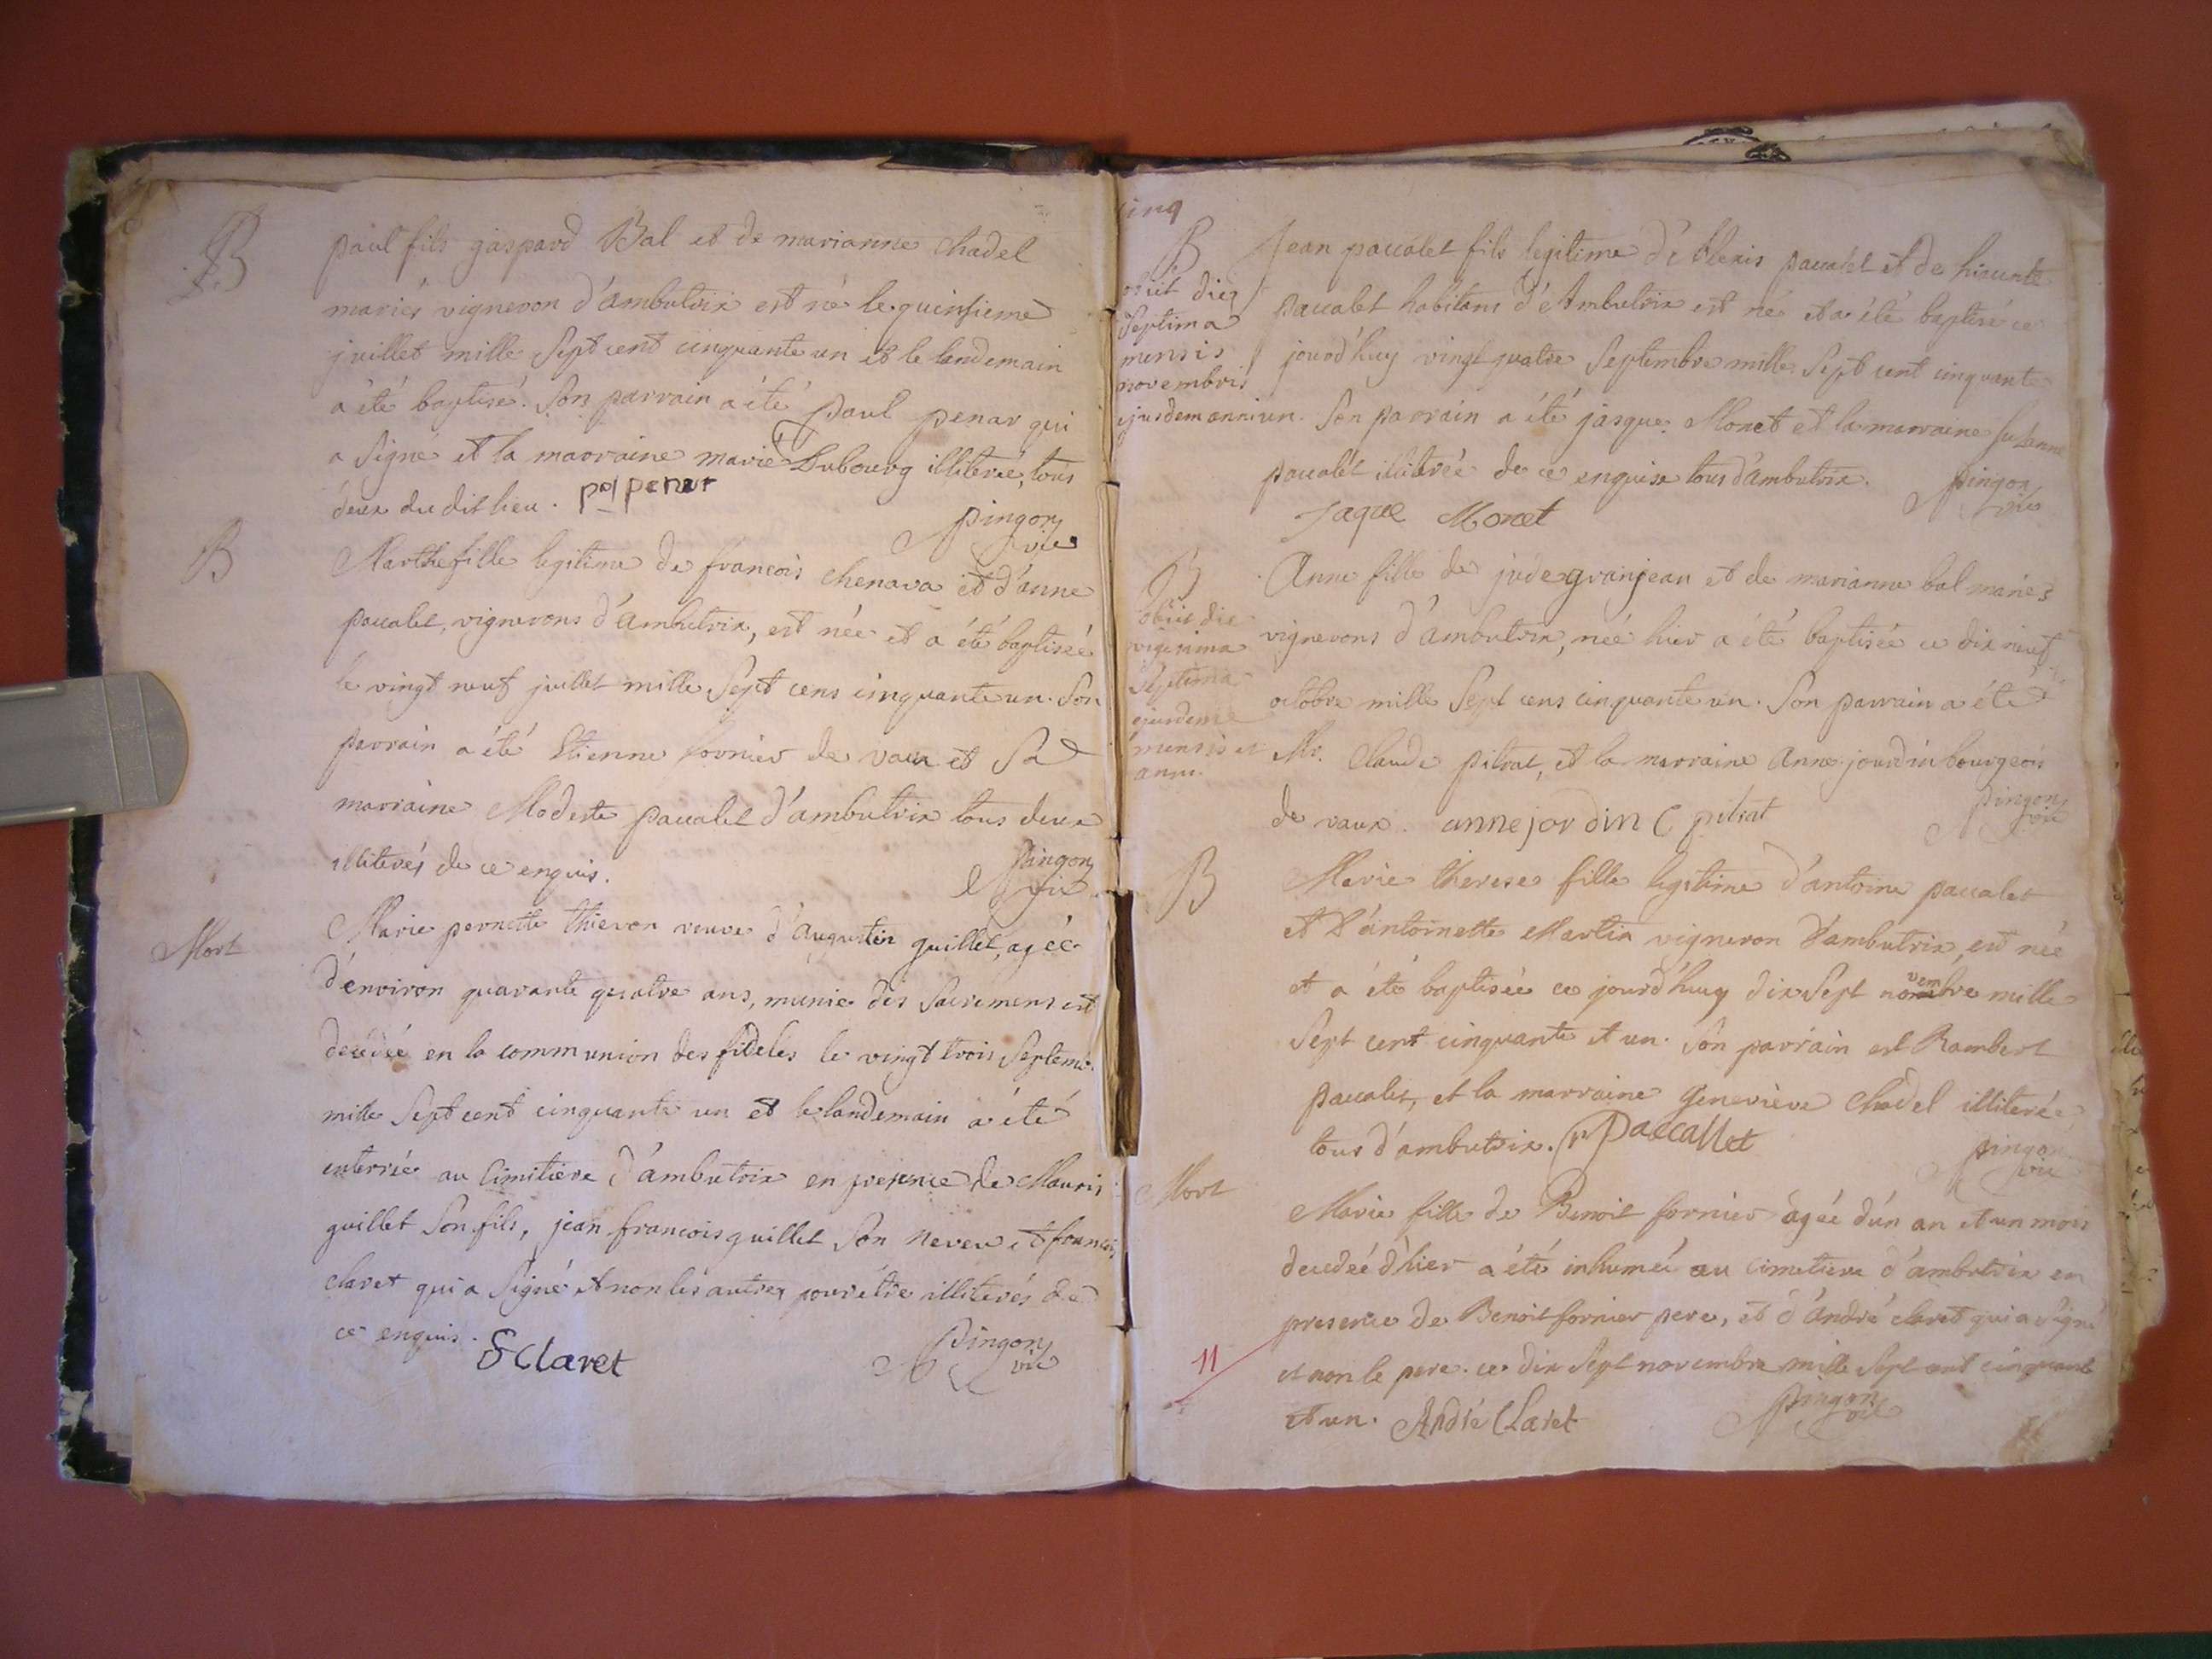 B
paul fils gaspard Bal et de marianne chadel
mariés vigneron d'ambutrix est né le quinsieme
juillet mille Sept cent cinquante un et le landemain
a été baptisé. Son parrain a été paul penar qui
a Signé et la marraine marie Dubourg illiterée, tous
deux du dit lieu. pol penar
pingon vic
B
Marthe fille legitime de francois chenava et d'anne
paccalet, vignerons d'Ambutrix, est née et a été baptisée
le vingt neuf juillet mille Sept cens cinquante un. Son
parrain a été Etienne fornier de vaux et Sa
marraine Modeste paccalet d'ambutrix tous deux
illiterés de ce enquis.
pingon vic
Mort
Marie pernette thievon veuve d'augustin guillet, agée
d'environ quarante quatre ans, munie des Sacremens est
decedée en la communion des fideles le vingt trois Septemb.
mille Sept cent cinquante un et le landemain a été
enterrée au Cimitiere d'ambutrix en presence de Mauris
guillet Son fils, jean francois guillet Son neveu et francois
claret qui a Signé et non les autres pour être illiterés de
ce enquis.
F Claret
pingon vic
cinq
B
obiit die
Septima
mensis
novembris
ejusdem anni
Jean paccalet fils legitime d'Alexis paccalet et de hiacinte
paccalet habitans d'Ambutrix est né et a été baptisé ce
jourd'huy vingt quatre Septembre mille Sept cent cinquante
un. Son parrain a été jasque Monet et la marraine Suzanne
paccalet illitrée de ce enquise tous d'ambutrix.
pingon vic
Jaque Monet
B
obiit die
vigesima
Septima
ejusdem
mensis et
anni.
Anne fille de jude granjean et de marianne bal mariés
vignerons d'ambutrix, née hier a été baptisée ce dix neuf
octobre mille Sept cens cinquante un. Son parrain a été
Mr. Claude pilrat, et la marraine Anne jourdin bourgeois
de vaux. anne jordin C pilrat
pingon vic
B
Marie therese fille legitime d'antoine paccalet
et d'antoinette Martin vigneron d'ambutrix, est née
et a été baptisée ce jourd'huy dix Sept novembre mille
Sept cent cinquante et un. Son parrain est Rambert
paccalet, et la marraine Genevieve Chadel illiterée,
tous d'ambutrix. r Paccallet
pingon vic
Mort
Marie fille de Benoit fornier agée d'un an et un mois
decedée d'hier a été inhumée au Cimetiere d'ambutrix en
presence de Benoit fornier pere, et d'andré claret qui a Signé
et non le pere. ce dix Sept novembre mille Sept cent cinquante
et un. André Claret
pingon vic
11